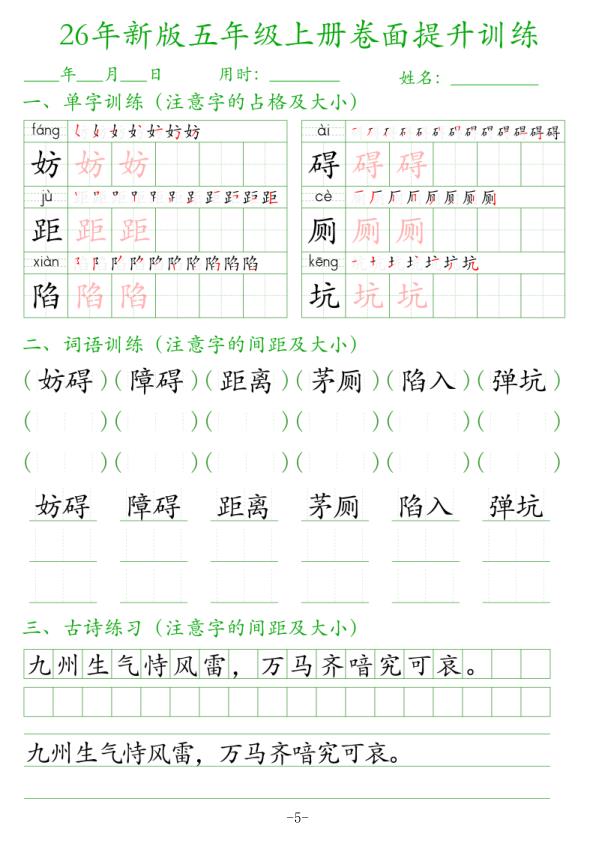 26年新版五年级上册卷面提升训练
____年___月___日 用时：________ 姓名：__________
一、单字训练（注意字的占格及大小）
fáng ài
妨 妨 妨 碍 碍 碍
jù cè
距 距 距 厕 厕 厕
xiàn kēng
陷 陷 陷 坑 坑 坑
二、词语训练（注意字的间距及大小）
（妨碍）（障碍）（距离）（茅厕）（陷入）（弹坑）
（ ）（ ）（ ）（ ）（ ）（ ）
（ ）（ ）（ ）（ ）（ ）（ ）
妨碍 障碍 距离 茅厕 陷入 弹坑
三、古诗练习（注意字的间距及大小）
九州生气恃风雷，万马齐喑究可哀。
九州生气恃风雷，万马齐喑究可哀。
-5-